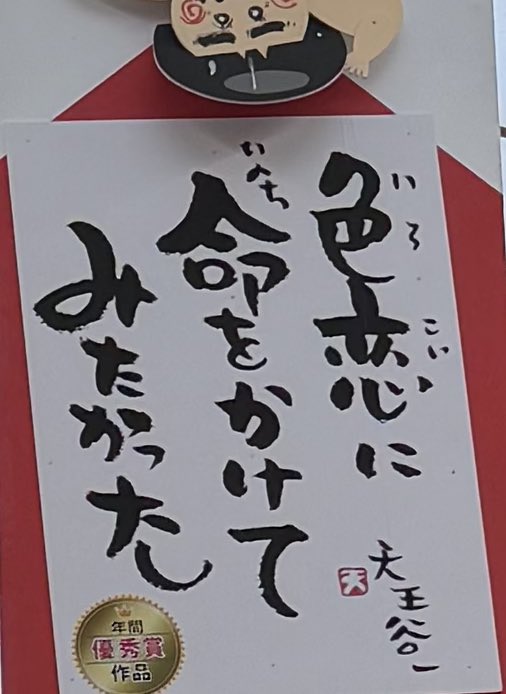 色恋に
いろ
こい
命をかけて
いのち
みたかった
天王谷一
天
年間
優秀賞
作品